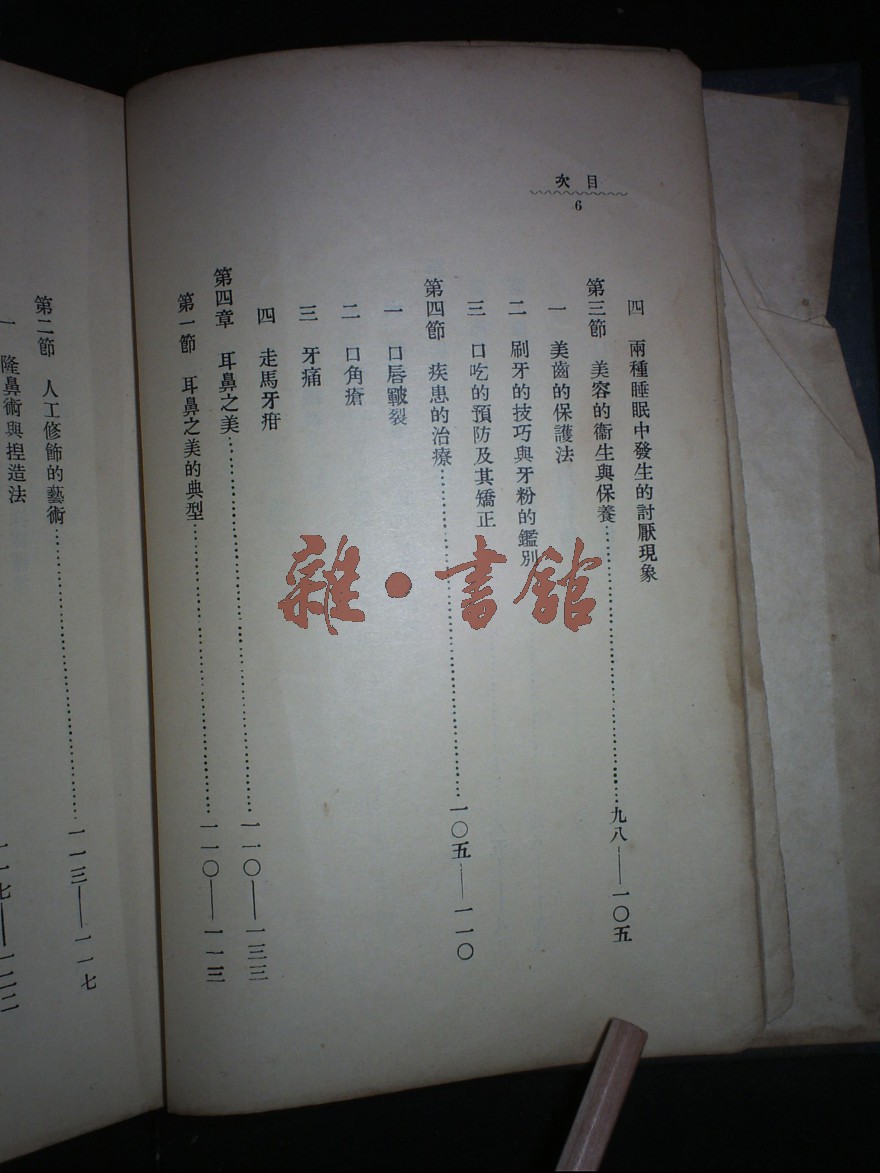 目次
6
四 兩種睡眠中發生的討厭現象
第三節 美容的衞生與保養……九八——一〇五
一 美齒的保護法
二 刷牙的技巧與牙粉的鑑別
三 口吃的預防及其矯正
第四節 疾患的治療……一〇五——一一〇
一 口唇皸裂
二 口角瘡
三 牙痛
四 走馬牙疳
第四章 耳鼻之美……一一〇——一三三
第一節 耳鼻之美的典型……一一〇——一一三
第二節 人工修飾的藝術……一一三——一一七
一 隆鼻術與揑造法
雜·書館